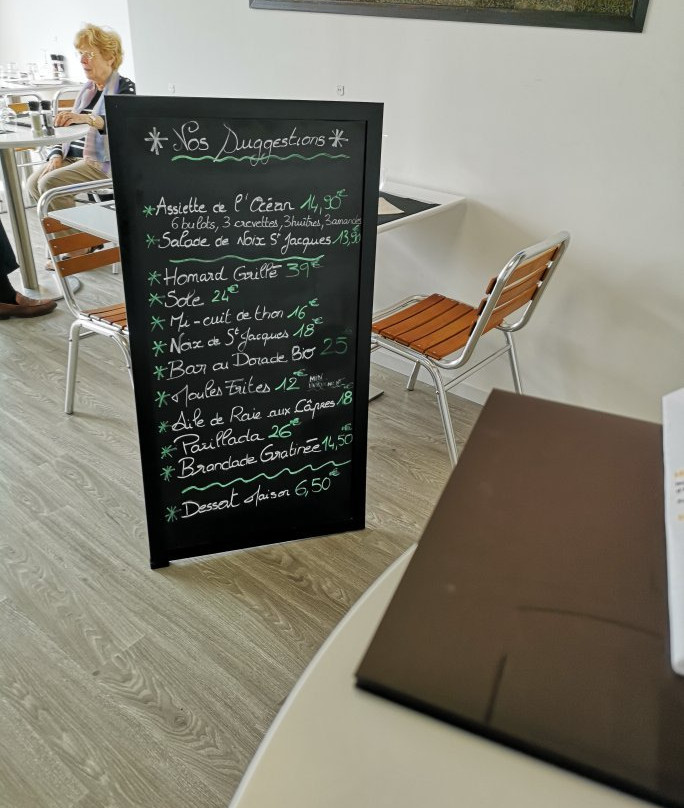 * Nos Suggestions *
* Assiette de l'Océan 14,90€
6 bulots, 3 crevettes, 3 huîtres, 3 amandes
* Salade de Noix St Jacques 13,90
* Homard Grillé 39€
* Sole 24€
* Mi-cuit de thon 16€
* Noix de St Jacques 18€
* Bar ou Dorade Bio 25€
* Moules Frites 12€
* Aile de Raie aux Câpres 18€
* Parillada 26€
* Brandade Gratinée 14,50€
* Dessert Maison 6,50€